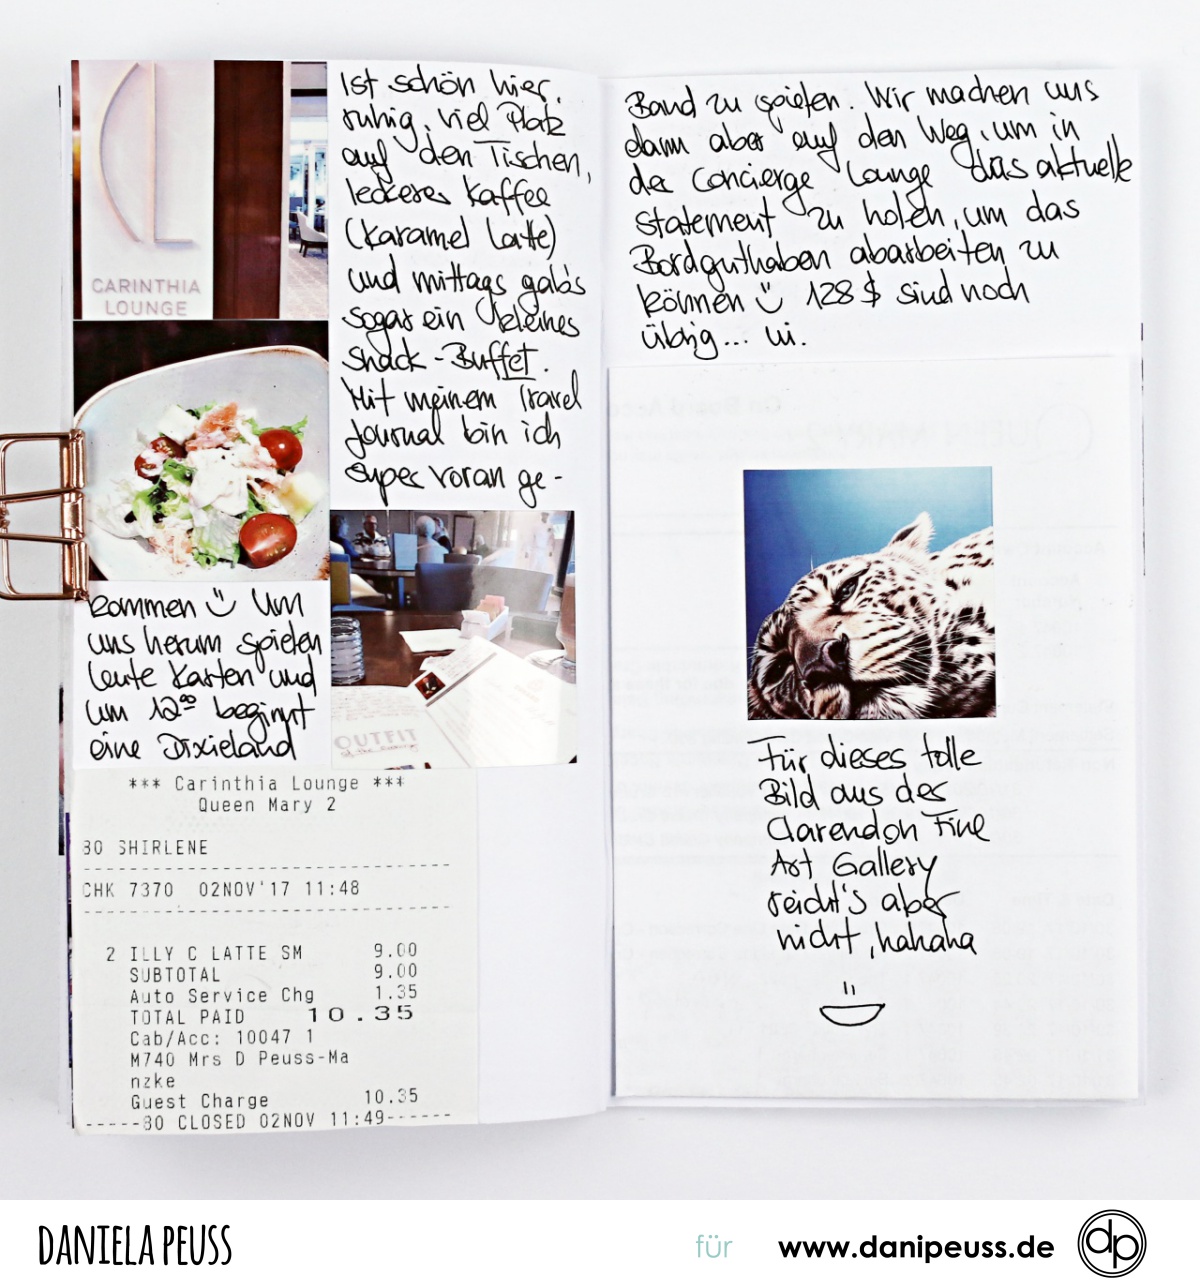 CL
CARINTHIA
LOUNGE
Ist schön hier,
ruhig, viel Platz
auf den Tischen,
leckeres Kaffee
(Karamel Latte)
und mittags gab's
sogar ein kleines
Snack-Buffet.
Mit meinem Travel
Journal bin ich
super voran ge-
kommen Um
uns herum spielen
Leute Karten und
um 12⁰⁰ beginnt
eine Dixieland
OUTFIT
*** Carinthia Lounge ***
Queen Mary 2
80 SHIRLENE
CHK 7370 02NOV'17 11:48
2 ILLY C LATTE SM 9.00
SUBTOTAL 9.00
Auto Service Chg 1.35
TOTAL PAID 10.35
Cab/Acc: 10047 1
M740 Mrs D Peuss-Ma
nzke
Guest Charge 10.35
-----80 CLOSED 02NOV 11:49------
Band zu spielen. Wir machen uns
dann aber auf den Weg, um in
der Concierge Lounge das aktuelle
Statement zu holen, um das
Bordguthaben abarbeiten zu
können 128 $ sind noch
übrig... ui.
Für dieses tolle
Bild aus der
Clarendon Fine
Art Gallery
reicht's aber
nicht, hahaha
DANIELA PEUSS
für www.danipeuss.de dp